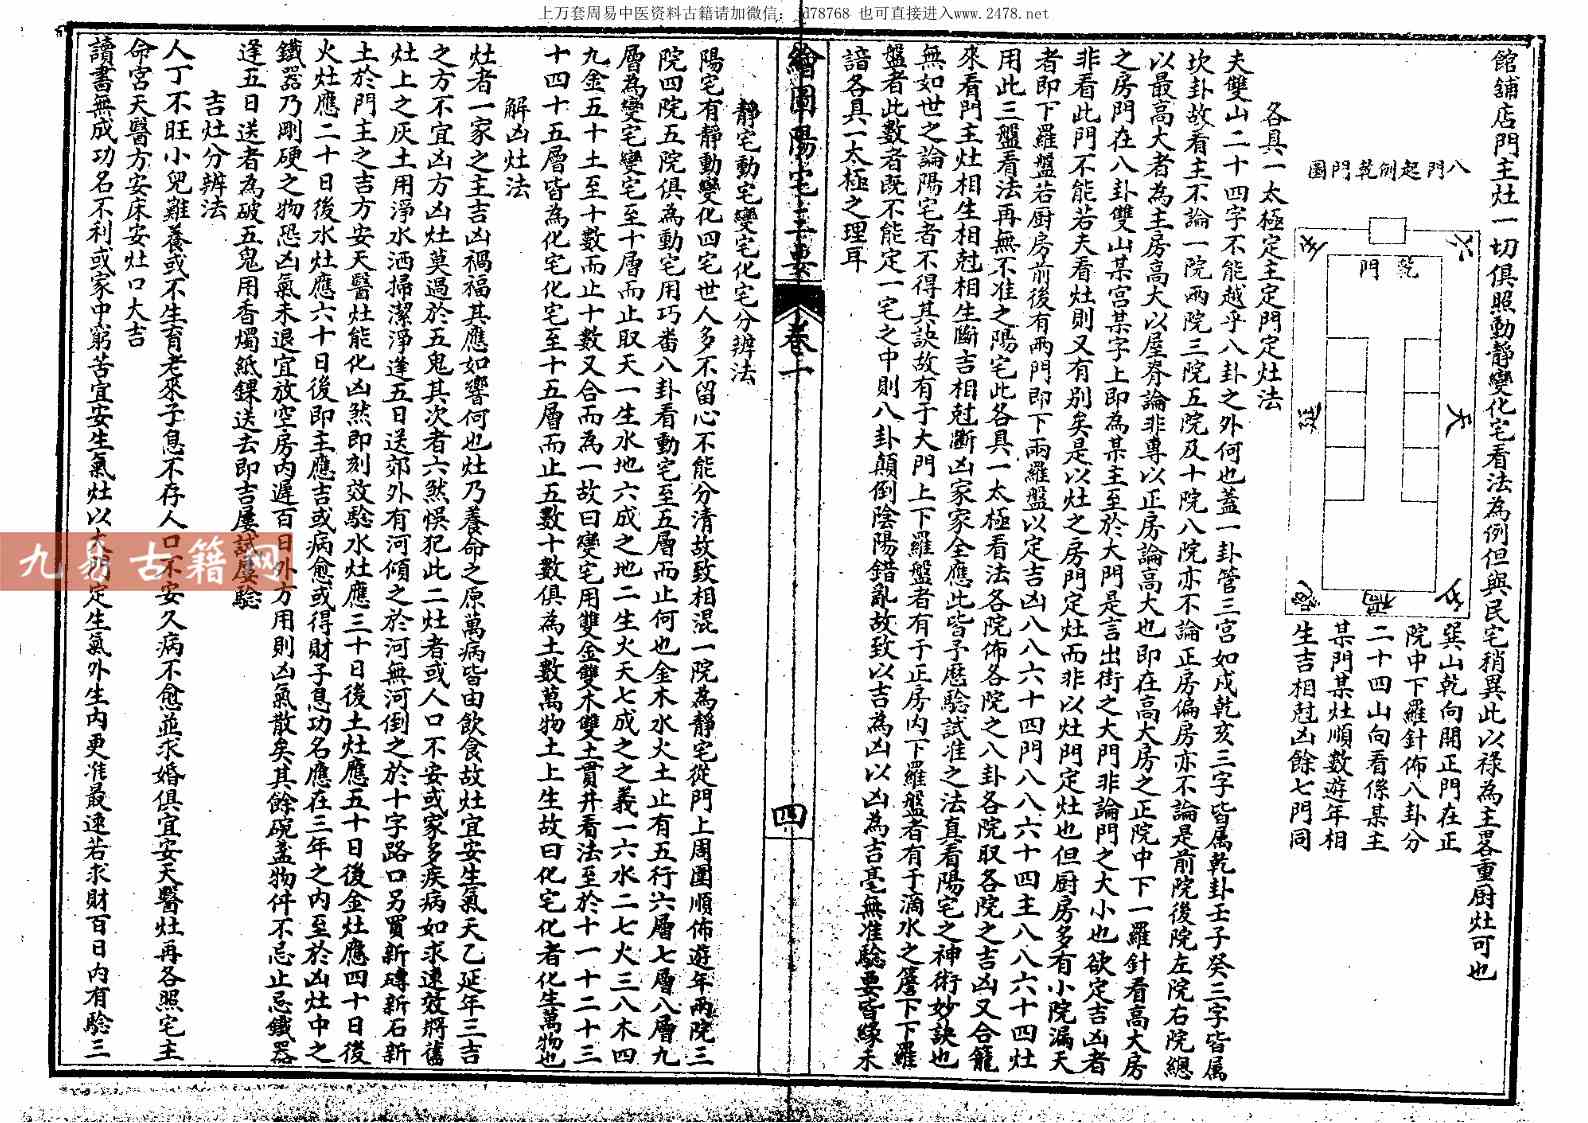 上万套周易中医资料古籍请加微信：jd78768 也可直接进入www.2478.net
館舖店門主灶一切俱照動靜變化宅看法為例但與民宅稍異此以祿為主畧重厨灶可也
八門起例乾門圖
乾門
六
天
五
禍
絕
生
延
巽山乾向開正門在正
院中下羅針佈八卦分
二十四山向看係某主
某門某灶順數遊年相
生吉相尅凶餘七門同
各具一太極定主定門定灶法
夫雙山二十四字不能越乎八卦之外何也蓋一卦管三宮如戍乾亥三字皆属乾卦壬子癸三字皆属
坎卦故看主不論一院兩院三院五院及十院八院亦不論正房偏房亦不論是前院後院左院右院總
以最高大者為主房高大以屋脊論非專以正房論高大也即在高大房之正院中下一羅針看高大房
之房門在八卦雙山某宮某字上即為某主至於大門是言出街之大門非論門之大小也欲定吉凶者
非看此門不能若夫看灶則又有别矣是以灶之房門定灶而非以灶門定灶也但厨房多有小院漏天
者即下羅盤若厨房前後有兩門即下兩羅盤以定吉凶八八六十四門八八六十四主八八六十四灶
用此三盤看法再無不准之陽宅此各具一太極看法各院佈各院之八卦各院取各院之吉凶又合籠
來看門主灶相生相尅相生斷吉相尅斷凶家家全應此皆予歷驗試准之法真看陽宅之神術妙訣也
無如世之論陽宅者不得其訣故有于大門上下羅盤者有于正房内下羅盤者有于滴水之簷下下羅
盤者此數者既不能定一宅之中則八卦顛倒陰陽錯亂故致以吉為凶以凶為吉毫無准驗要皆緣未
諳各具一太極之理耳
繪圖陽宅三要 卷一 四
靜宅動宅變宅化宅分辨法
陽宅有靜動變化四宅世人多不留心不能分清故致相混一院為靜宅從門上周圍順佈遊年兩院三
院四院五院俱為動宅用巧番八卦看動宅至五層而止何也金木水火土止有五行六層七層八層九
層為變宅變宅至十層而止取天一生水地六成之地二生火天七成之之義一六水二七火三八木四
九金五十土至十數而止十數又合而為一故曰變宅用雙金雙木雙土貫井看法至於十一十二十三
十四十五層皆為化宅化宅至十五層而止五數十數俱為土數萬物土上生故曰化宅化者化生萬物也
解凶灶法
灶者一家之主吉凶禍福其應如響何也灶乃養命之原萬病皆由飲食故灶宜安生氣天乙延年三吉
之方不宜凶方凶灶莫過於五鬼其次者六煞悞犯此二灶者或人口不安或家多疾病如求速效將舊
灶上之灰土用淨水洒掃潔淨逢五日送郊外有河傾之於河無河倒之於十字路口另買新磚新石新
土於門主之吉方安天醫灶能化凶煞即刻效驗水灶應三十日後土灶應五十日後金灶應四十日後
火灶應二十日後水灶應六十日後即主應吉或病愈或得財子息功名應在三年之内至於凶灶中之
鐵器乃剛硬之物恐凶氣未退宜放空房内遲百日外方用則凶氣散矣其餘碗盞物件不忌止忌鐵器
逢五日送者為破五鬼用香燭紙錁送去即吉屢試屢驗
吉灶分辨法
人丁不旺小兒難養或不生育老來子息不存人口不安久病不愈並求婚俱宜安天醫灶再各照宅主
命宮天醫方安床安灶口大吉
讀書無成功名不利或家中窮苦宜安生氣灶以大門定生氣外生内更准最速若求財百日内有驗三
九易古籍网